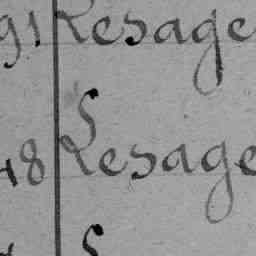 91 Lesage
48 Lesage